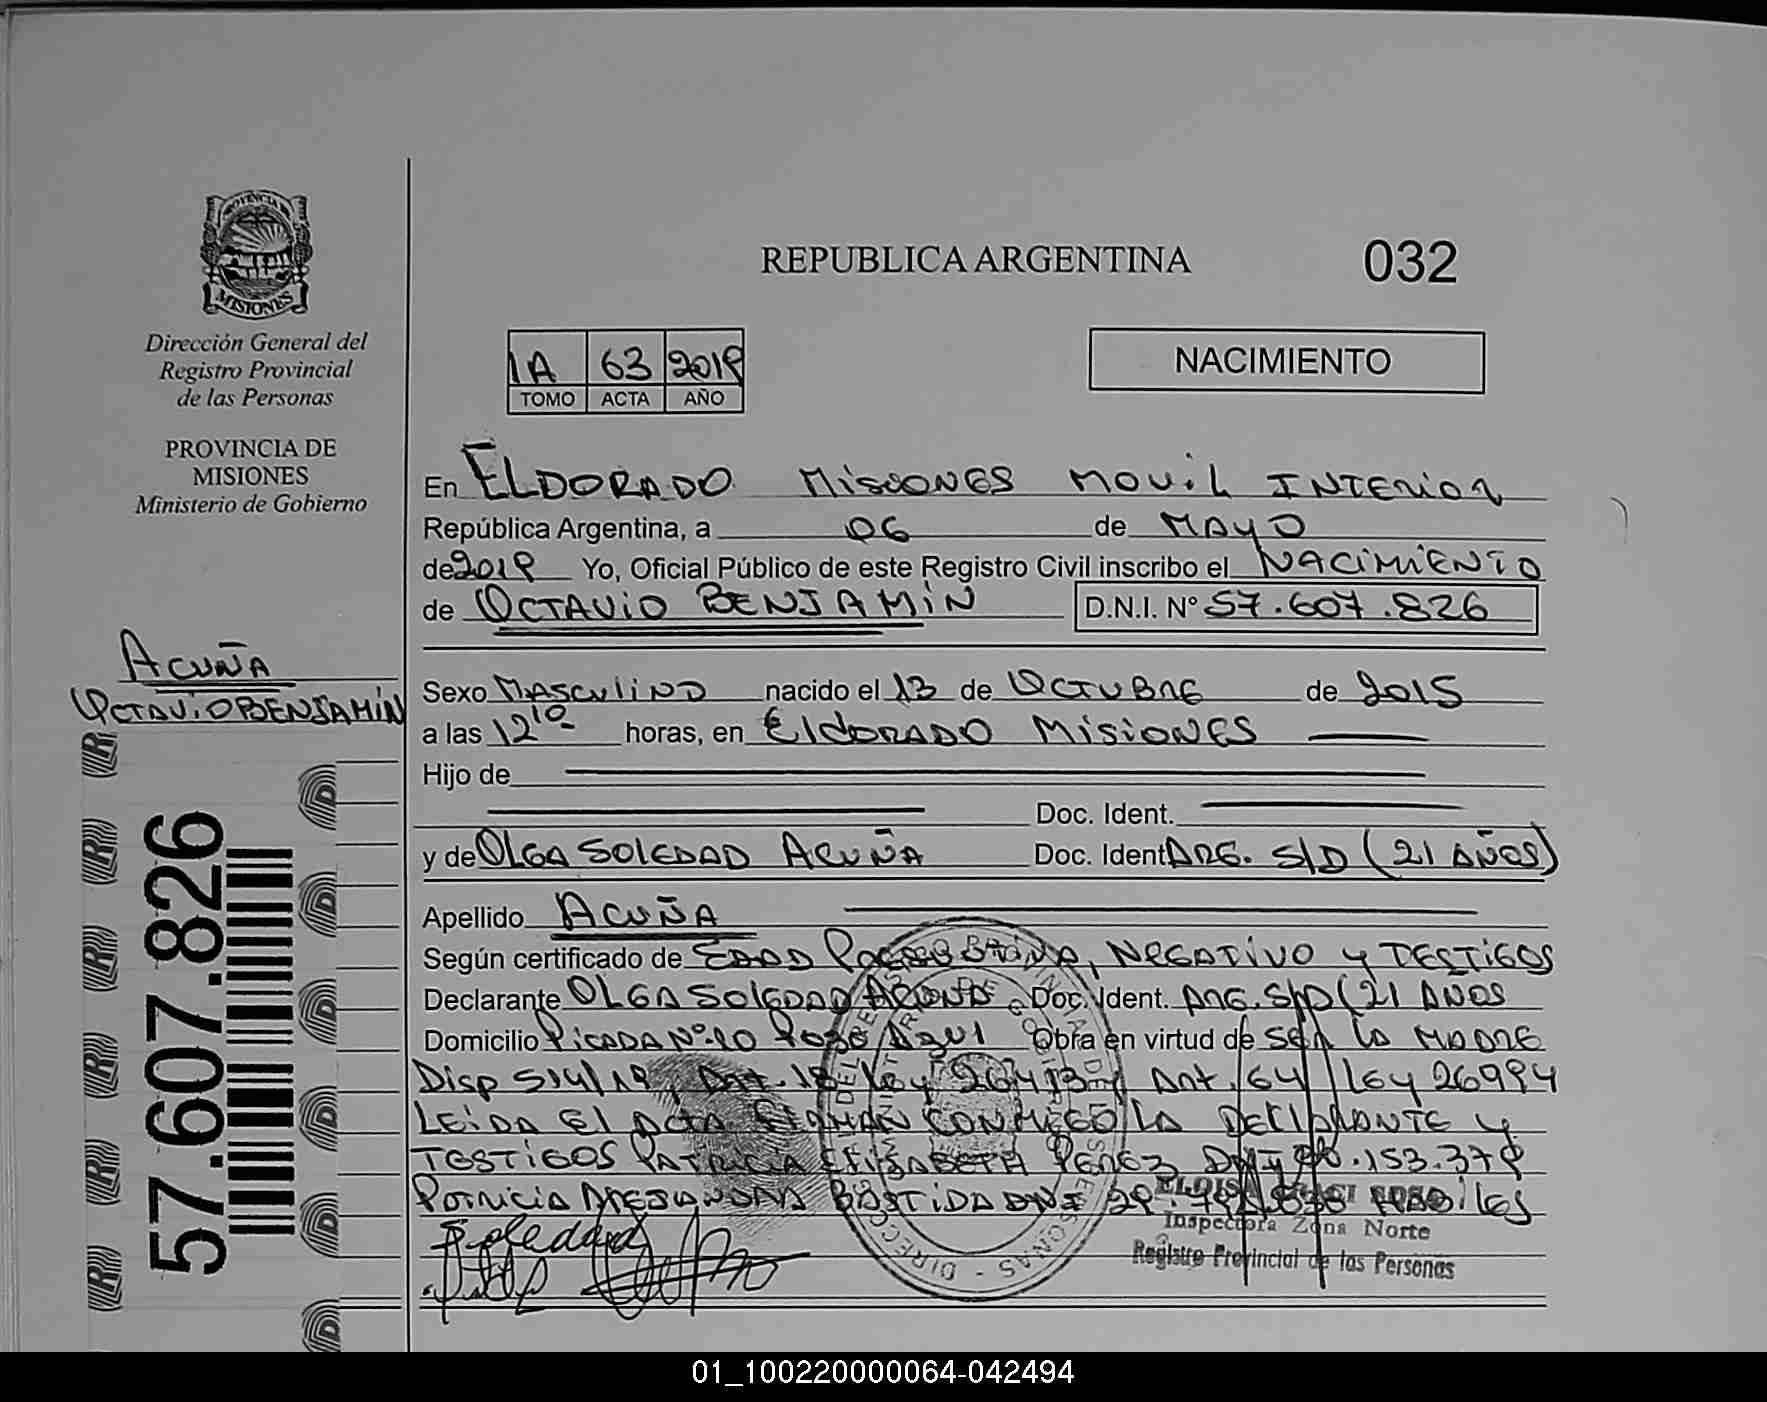 PROVINCIA DE
MISIONES
Dirección General del
Registro Provincial
de las Personas
PROVINCIA DE
MISIONES
Ministerio de Gobierno
ACUÑA
OCTAVIO BENJAMIN
57.607.826
REPUBLICA ARGENTINA
032
1A 63 2019
TOMO ACTA AÑO
NACIMIENTO
En ELDORADO MISIONES MOVIL INTERIOR
República Argentina, a 06 de MAYO
de 2019 Yo, Oficial Público de este Registro Civil inscribo el NACIMIENTO
de OCTAVIO BENJAMIN D.N.I. Nº 57.607.826
Sexo MASCULINO nacido el 13 de OCTUBRE de 2015
a las 12 10 horas, en ELDORADO MISIONES
Hijo de
Doc. Ident.
y de OLGA SOLEDAD ACUÑA Doc. Ident. ARG. S/D (21 AÑOS)
Apellido ACUÑA
Según certificado de EDAD NEGATIVO y TESTIGOS
Declarante OLGA SOLEDAD ACUÑA Doc. Ident. ARG. S/D (21 AÑOS
Domicilio PICADA Nº 10 POZO AZUL Obra en virtud de SER LA MADRE
Disp 514/19, Art. 18 Ley 26413 y Art. 64 Ley 26994
LEIDA EL ACTA FIRMAN CONMIGO LA DECLARANTE y
TESTIGOS PATRICIA ELIZABETH PEREZ DNI .153.379
PATRICIA ALEJANDRA BASTIDA DNI HABILES
Soledad
ELOISA
Inspectora Zona Norte
Registro Provincial de las Personas
01_100220000064-042494